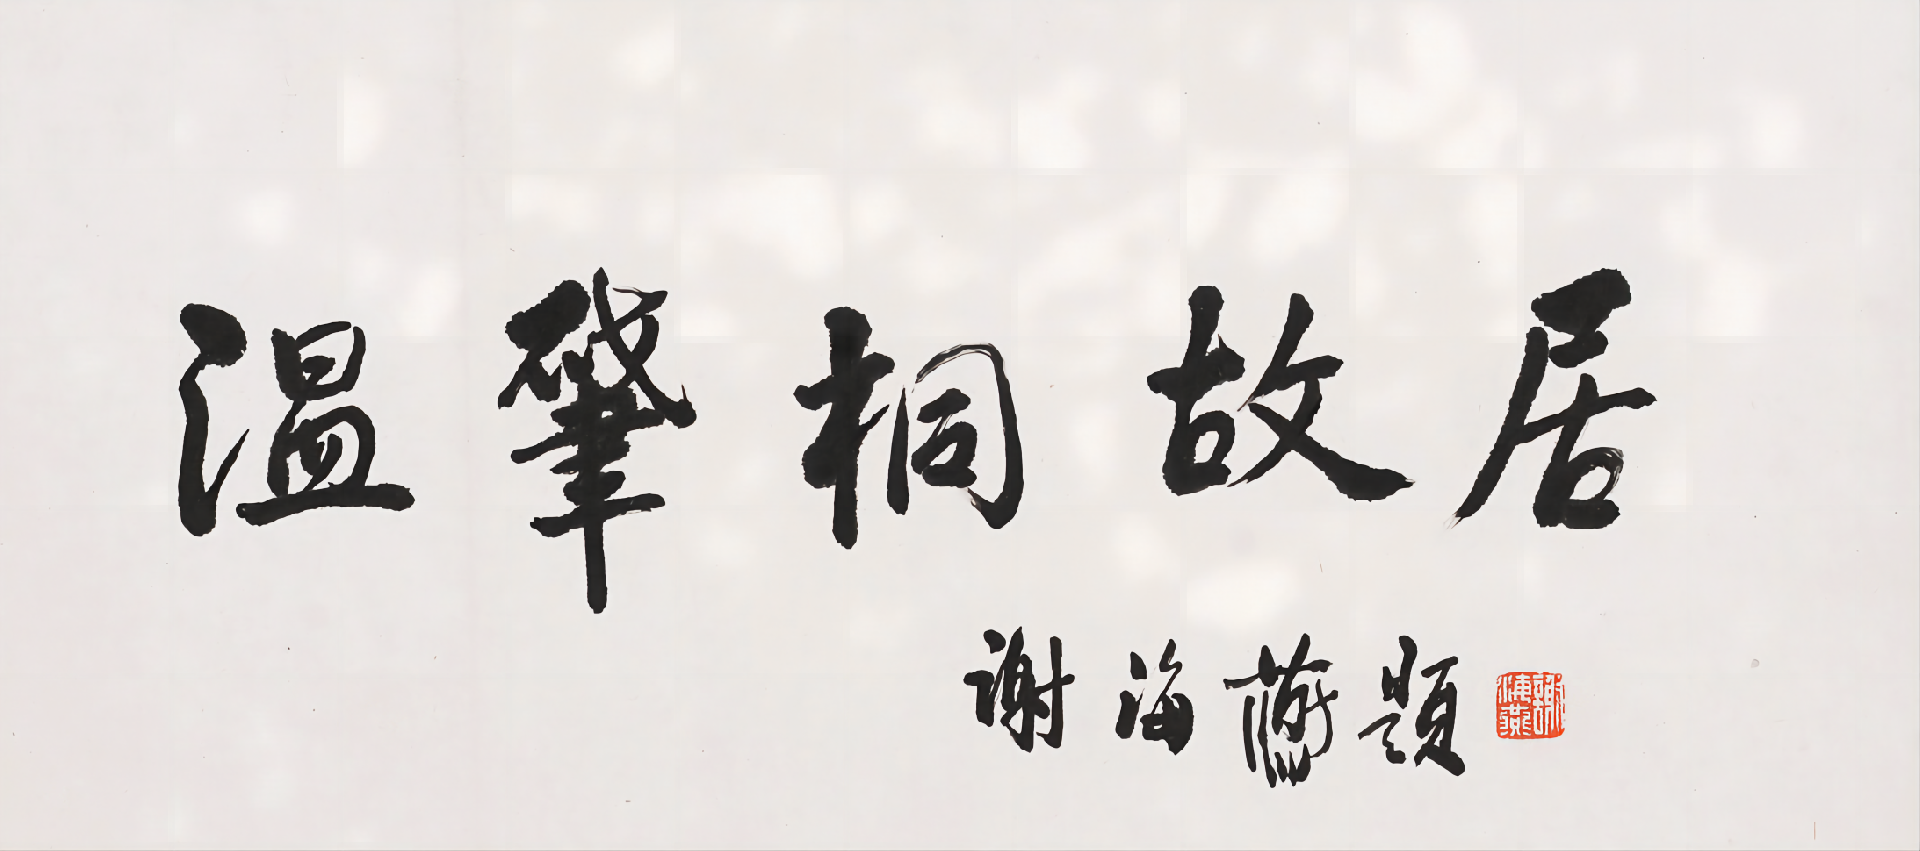 温肇桐故居
谢海燕题
謝海燕